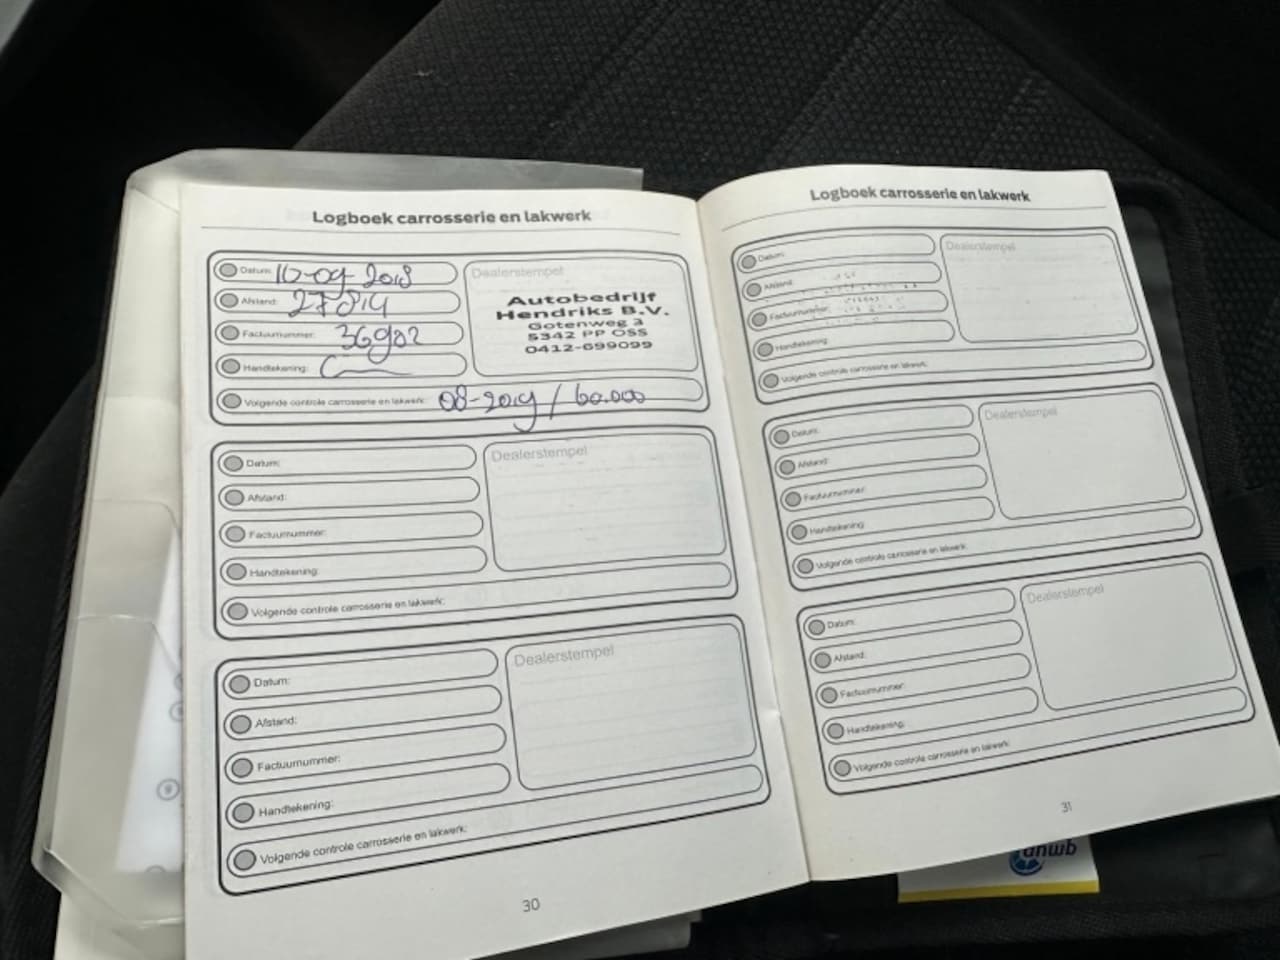 Logboek carrosserie en lakwerk
Datum: 10-09 2018
Afstand: 27814
Factuurnummer: 36982
Handtekening:
Volgende controle carrosserie en lakwerk: 08-2019 / 60.000
Dealerstempel
Autobedrijf
Hendriks B.V.
Gotenweg 3
5342 PP OSS
0412-699099
Datum:
Afstand:
Factuurnummer:
Handtekening:
Volgende controle carrosserie en lakwerk:
Dealerstempel
Datum:
Afstand:
Factuurnummer:
Handtekening:
Volgende controle carrosserie en lakwerk:
Dealerstempel
30
Logboek carrosserie en lakwerk
Datum:
Afstand:
Factuurnummer:
Handtekening:
Volgende controle carrosserie en lakwerk:
Dealerstempel
Datum:
Afstand:
Factuurnummer:
Handtekening:
Volgende controle carrosserie en lakwerk:
Dealerstempel
Datum:
Afstand:
Factuurnummer:
Handtekening:
Volgende controle carrosserie en lakwerk:
Dealerstempel
31
anwb